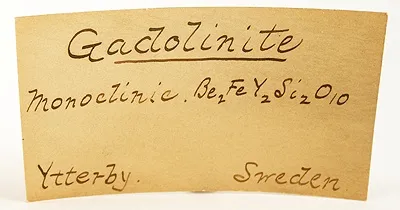 Gadolinite
Monoclinic. Be₂FeY₂Si₂O₁₀
Ytterby. Sweden